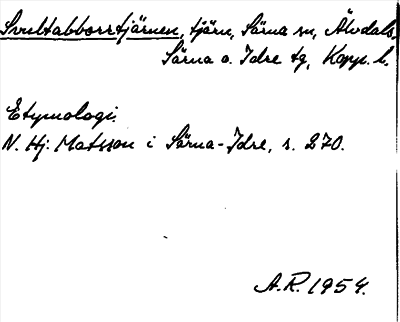 Svultabborrtjärnen, tjärn, Särna sn, Älvdals,
Särna o. Idre tg, Kopp. l.
Etymologi.
N. Hj. Matsson i Särna-Idre, s. 270.
A.R. 1954.